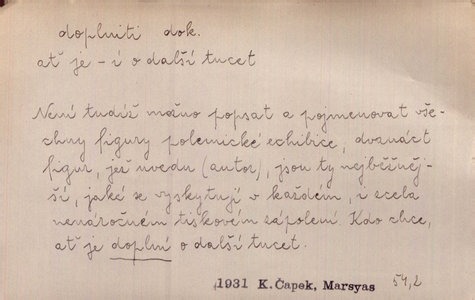 doplniti dok.
ať je - i o další tucet
Není tudíž možno popsat a pojmenovat vše-
chny figury polemické echibice, dvanáct
figur, jež uvedu (autor), jsou ty nejběžněj-
ší, jaké se vyskytují v každém, i zcela
nenáročném tiskovém zápolení. Kdo chce,
ať je doplní o další tucet.
1931 K.Čapek, Marsyas 54,2